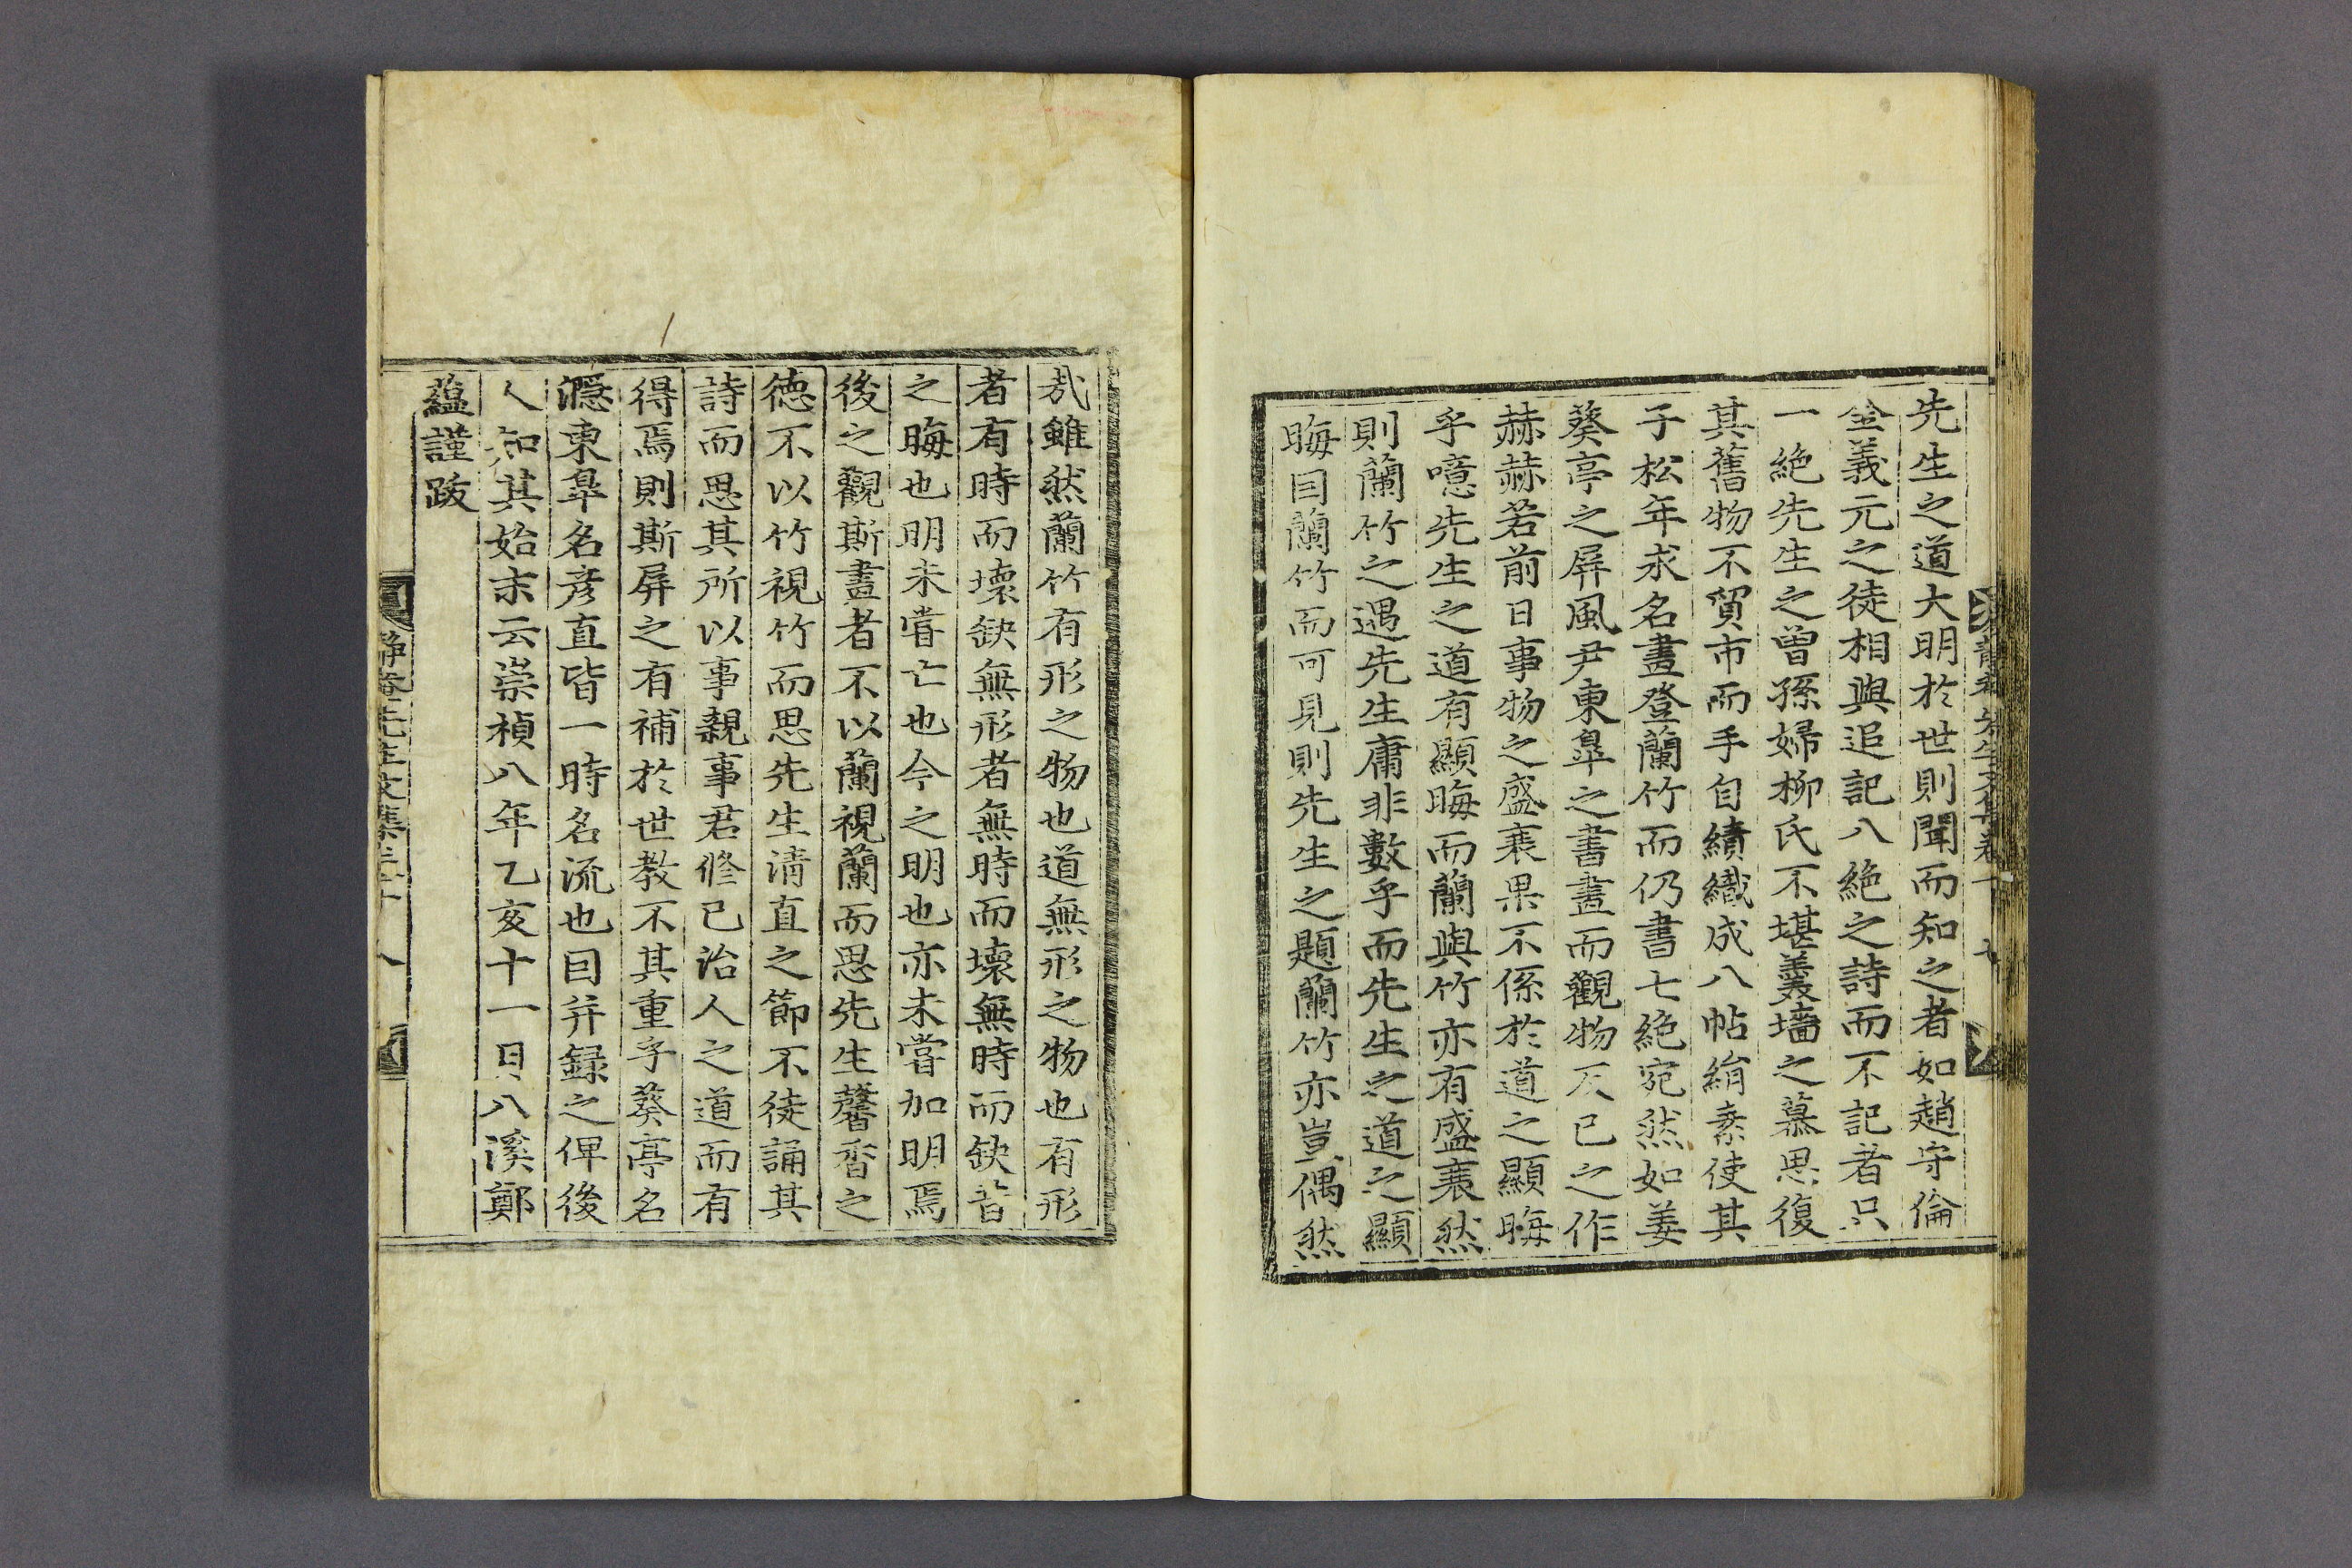 先生之道大明於世則聞而知之者如趙守倫
金義元之徒相與追記八絶之詩而不記者只
一絶先生之曾孫婦柳氏不堪羹墻之慕思復
其舊物不貿市而手自績織成八帖絹素使其
子松年求名畫登蘭竹而仍書七絶宛然如姜
葵亭之屏風尹東臯之書畫而觀物反已之作
赫赫若前日事物之盛衰果不係於道之顯晦
乎噫先生之道有顯晦而蘭與竹亦有盛衰然
則蘭竹之遇先生庸非數乎而先生之道之顯
晦因蘭竹而可見則先生之題蘭竹亦豈偶然
㢤雖然蘭竹有形之物也道無形之物也有形
者有時而壞缺無形者無時而壞無時而缺昔
之晦也明未嘗亡也今之明也亦未嘗加明焉
後之觀斯畫者不以蘭視蘭而思先生馨香之
德不以竹視竹而思先生清直之節不徒誦其
詩而思其所以事親事君修已治人之道而有
得焉則斯屏之有補於世教不其重乎葵亭名
濦東臯名彦直皆一時名流也因并録之俾後
人知其始末云崇禎八年乙亥十一月八溪鄭
蘊謹跋
静菴先生文集